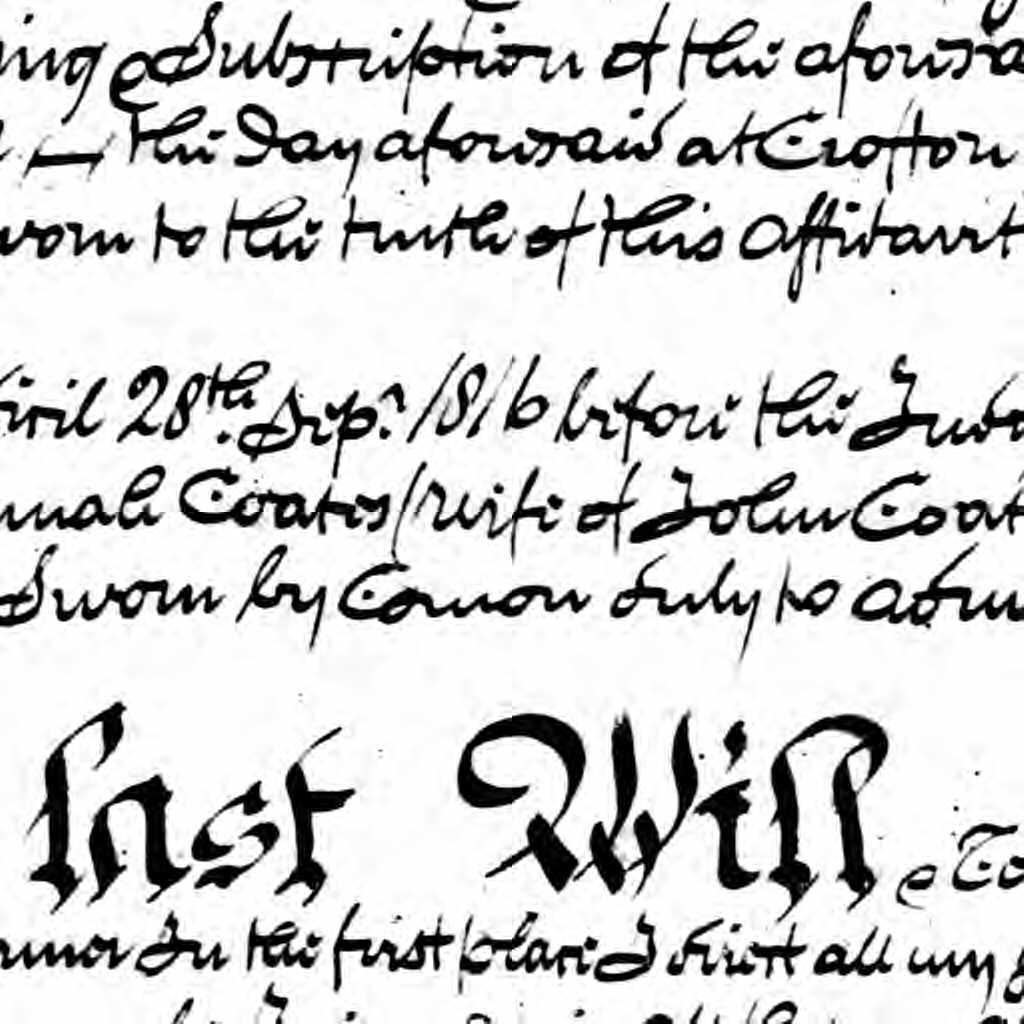 ing & Subscription of the aforesa
the Day aforesaid at Crofton
worn to the truth of this Affidavit
28th Sepr. 1816 before the Judg
nnah Coates (Wife of John Coat
Sworn by Comon duly to adm
last Will & Te
nner In the first place I direct all my